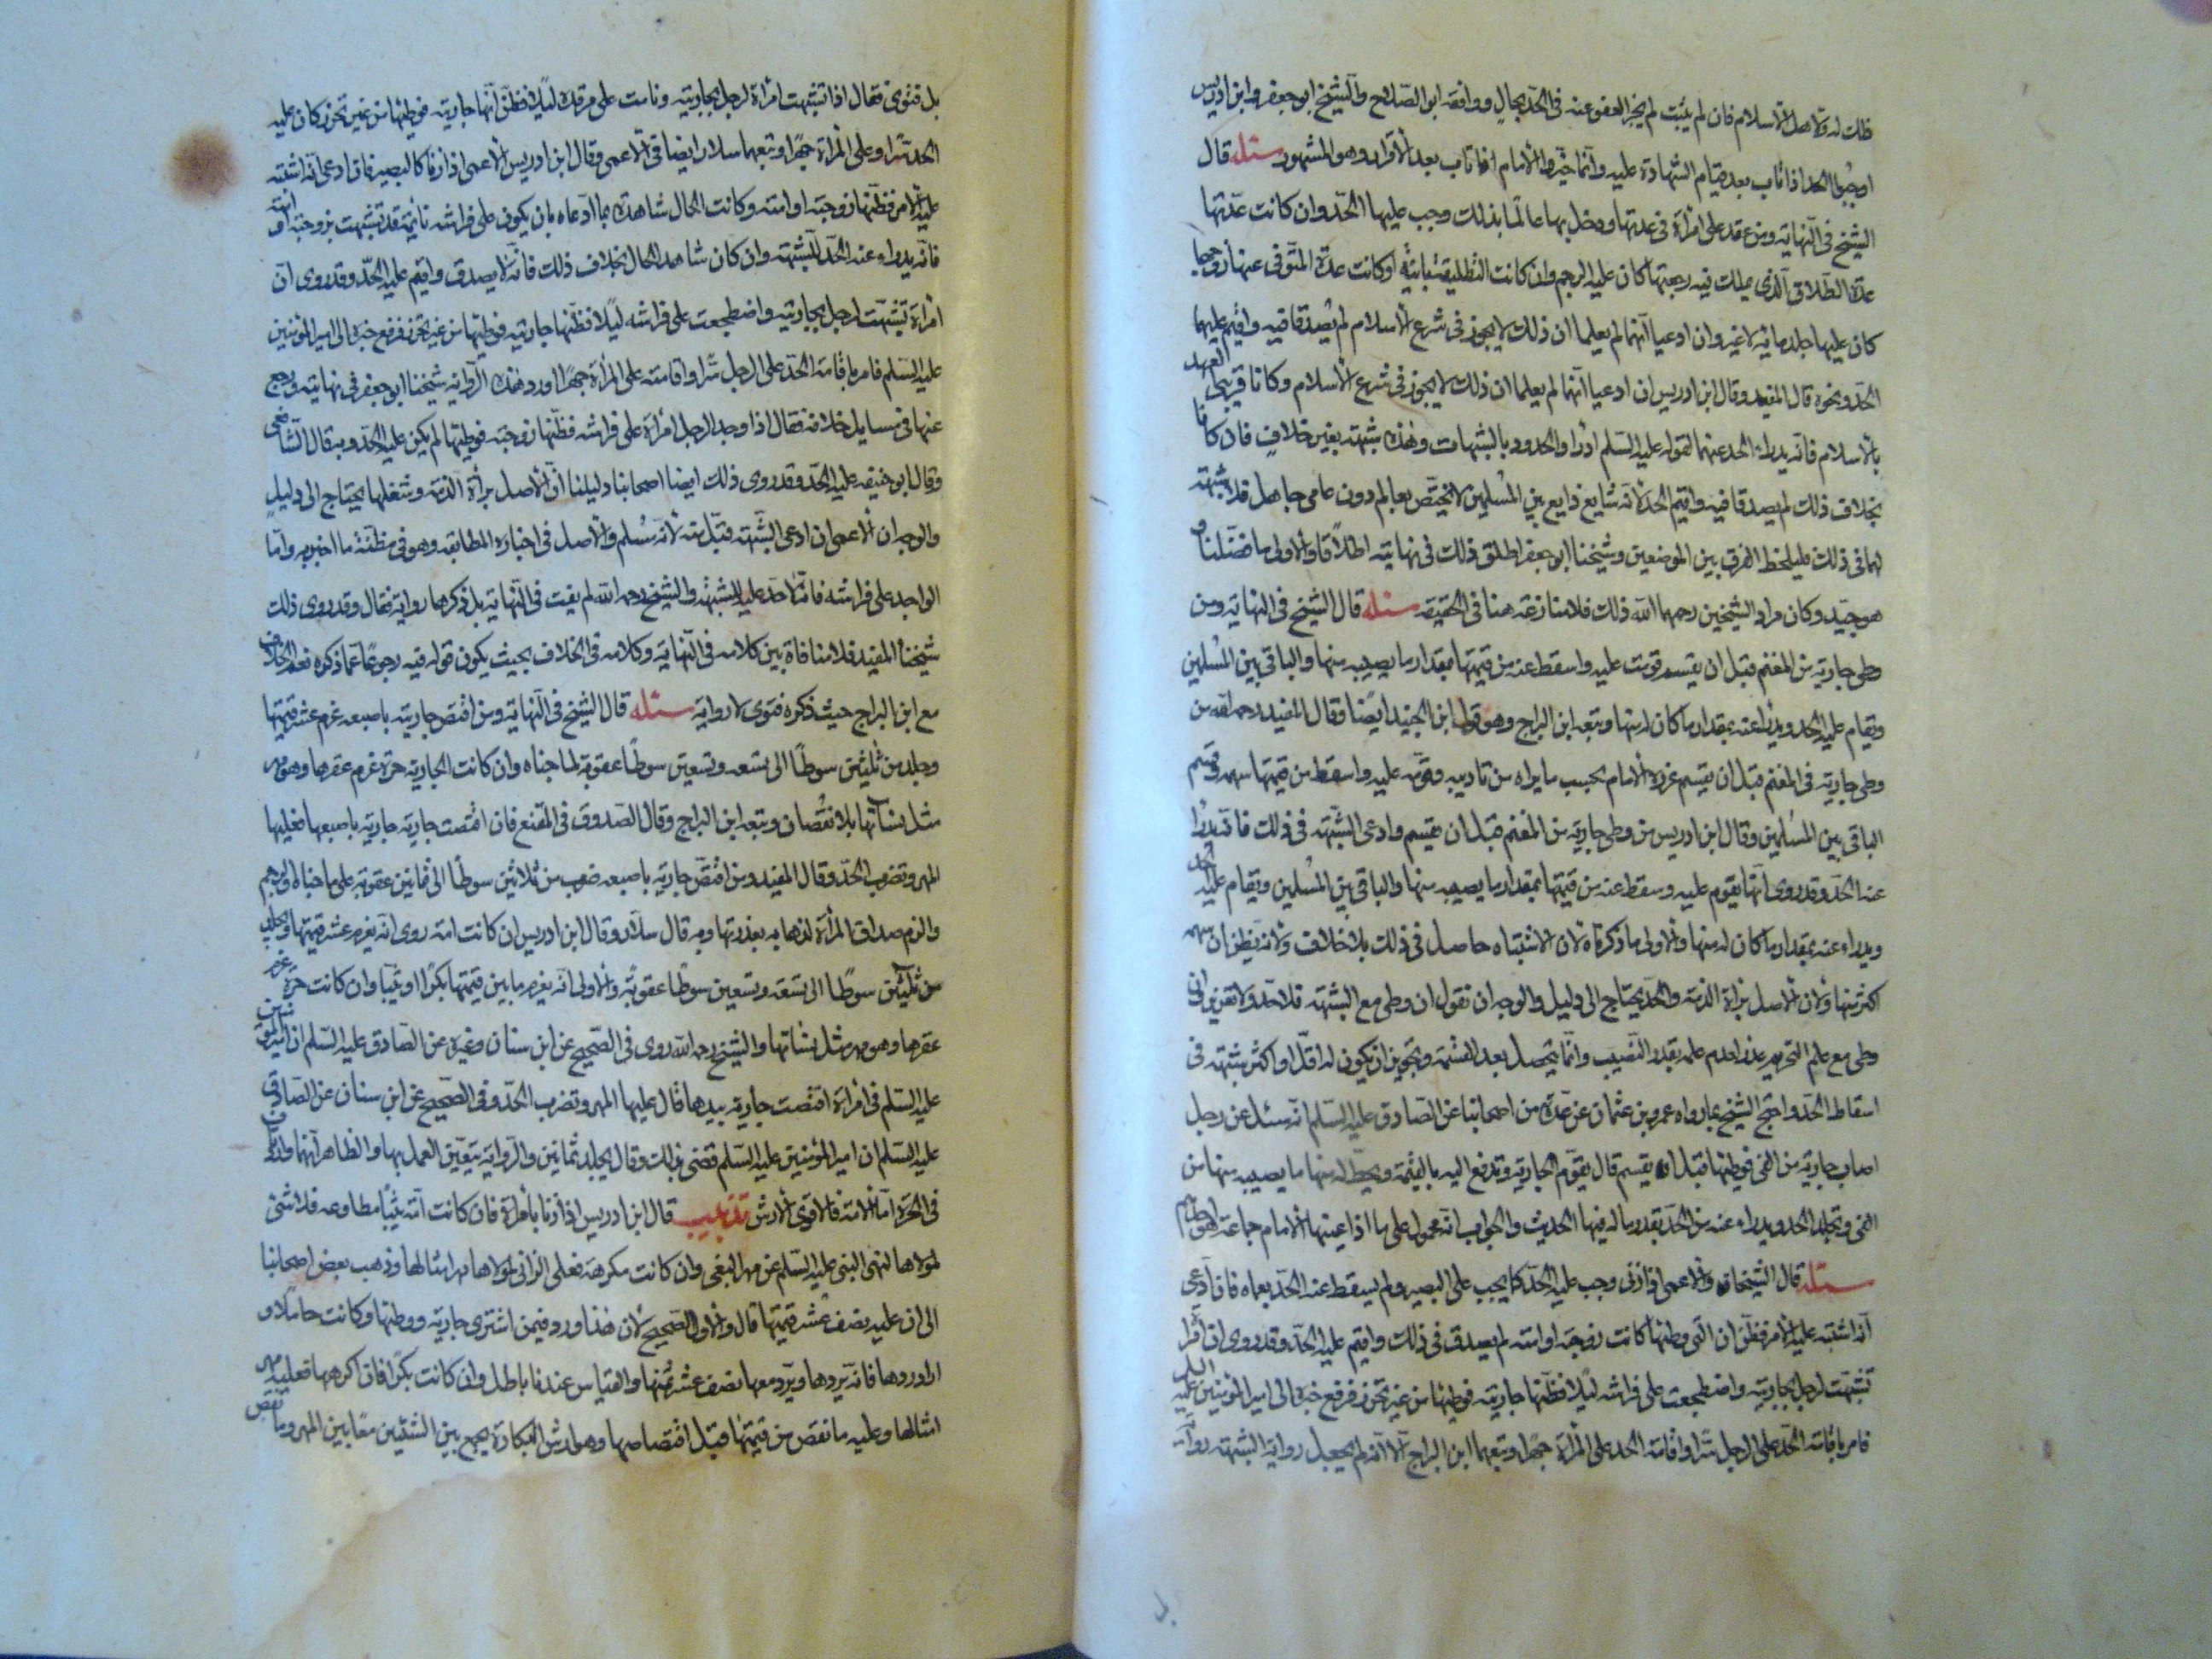 ظلت له ولاهل الاسلام فان لم يثبت لم يجز العفو عنه فى الحدّ بحال ووافقه ابو الصّلاح والشيخ ابو جعفر وابن ادريس
اوجبوا الحد اذا تاب بعد قيام الشهادة عليه وانما خيروا الامام اذا تاب بعد الاقرار وهو المشهور مسئله قال
الشيخ فى النهاية ومن عقد على امرأة فى عدتها ودخل بها عالما بذلك وجب عليها الحدّ وان كانت عدّتها
عدة الطلاق الذى يملك فيه رجعتها كان عليه الرجم وان كانت التطليقة باينة او كانت عدة المتوفى عنها زوجها
كان عليها جلد مائة لا غير وان ادعيا انهما لم يعلما ان ذلك لا يجوز فى شرع الاسلام لم يصدقا فيه واقيم عليهما
الحدّ ونحوه قال المفيد وقال ابن ادريس ان ادعيا انهما لم يعلما ان ذلك لا يجوز فى شرع الاسلام وكانا قريبى العهد
بالاسلام فانه يدراء الحد عنهما لقوله عليه السّلم ادراوا الحدود بالشبهات وهذه شبهة بغير خلاف فان كانا
بخلاف ذلك لم يصدقا فيه واقيم الحد لانه شايع ذايع بين المسلمين لا يختصّ بعالم دون عامى جاهل فلا شبهة
لهما فى ذلك فليلحظ الفرق بين الموضعين وشيخنا ابو جعفر اطلق ذلك فى نهايته اطلاقا والاولى ما فصّلناه و
هو جيّد وكان مراد الشيخين رحمهما الله ذلك فلا منازعة هنا فى الحقيقة مسئله قال الشيخ فى النهاية ومن
وطى جارية من المغنم قبل ان يقسم قومت عليه واسقط عنه من قيمتها بمقدار ما يصيبه منها والباقى بين المسلمين
ويقام عليه الحد ويدرأ عنه بمقدار ما كان له منها وتبعه ابن البراج وهو قول ابن الجنيد ايضا وقال المفيد رحمه الله من
وطى جارية فى المغنم قبل ان يقسم عزره الامام بحسب ما يراه من تاديبه وقومه عليه واسقط من قيمتها سهمه وقسم
الباقى بين المسلمين وقال ابن ادريس من وطى جارية من المغنم قبل ان يقسم وادعى الشبهة فى ذلك فانه يدرأ
عنه الحدّ وقد روى انها يقوم عليه وسقط عنه من قيمتها بمقدار ما يصيبه منها والباقى بين المسلمين ويقام عليه الحد
ويدراء عنه بمقدار ما كان له منها والاولى ما ذكرناه لان الاشتباه حاصل فى ذلك بلا خلاف ولانه يظن ان سهمه
اكثر منها ولان الاصل براة الذمة والحد يحتاج الى دليل والوجه ان نقول ان وطى مع الشبهة فلا حد ولا تعزير وان
وطى مع علم التحريم عزر لعدم علمه بقدر النصيب وانما يحصل بعد القسمة وتجويز ان يكون له اقل او اكثر شبهة فى
اسقاط الحدّ واحتج الشيخ بما رواه عمرو بن عثمان عن عدة من اصحابنا عن الصادق عليه السلم انه سئل عن رجل
اصاب جارية من الفى فوطئها قبل ان يقسم قال يقوّم الجارية ويدفع اليه بالقيمة ويحطّ له منها ما يصيبه منها من
الفى ويجلد الحد ويدراء عنه من الحدّ بقدر ما له فيها الحديث والجواب انه محمول على ما اذا عينها الامام لجماعة هو احدهم
مسئله قال الشيخان والاعمى اذا زنى وجب عليه الحدّ كما يجب على البصير ولم يسقط عنه الحدّ بعماه فان ادّعى
انه اشتبه عليه الامر فظنّ ان التى وطئها كانت زوجته او امته لم يصدق فى ذلك واقيم عليه الحدّ وقد روى ان امرأة
تشبّهت لرجل بجاريته واضطجعت على فراشه ليلا فظنّها جاريته فوطئها من غير تحرز فرفع خبره الى امير المؤمنين عليه السلم
فامر باقامة الحدّ على الرجل سّرا واقامة الحد على المرأة جهرًا وتبعهما ابن البراج الا انه لم يجعل رواية الشبهة رواية
بل فتوى فقال اذا تشبّهت امرأة لرجل بجاريته ونامت على مرقده ليلا فظنّ انّها جاريته فوطئها من غير تحرز كان عليه
الحد سّرا وعلى المرأة جهرًا وتبعهما سلار ايضا فى الاعمى وقال ابن ادريس الاعمى اذا زنا كالبصير فان ادعى انه اشتبه
عليه الامر فظنّها زوجته او امته وكانت الحال شاهدة بما ادّعاه بان يكون على فراشه نائمة قد تشبّهت بزوجته او امته
فانّه يدراء عنه الحدّ للشّبهة وان كان شاهد الحال بخلاف ذلك فانه لا يصدق واقيم عليه الحدّ وقد روى انّ
امراة تشبّهت لرجل بجاريته واضطجعت على فراشه ليلا فظنّها جاريته فوطئها من غير تحرز فرفع خبره الى امير المؤمنين
عليه السّلم فامر باقامة الحدّ على الرجل سّرا واقامته على المرأة جهرًا اورد هذه الرّواية شيخنا ابو جعفر فى نهايته ورجع
عنها فى مسايل خلافه فقال اذا وجد الرجل امرأة على فراشه فظنّها زوجته فوطئها لم يكن عليه الحدّ وبه قال الشّافعى
وقال ابو حنيفه عليه الحدّ وقد روى ذلك ايضا اصحابنا دليلنا انّ الاصل برأة الذّمة وشغلها يحتاج الى دليل
والوجه ان الاعمى ان ادعى الشّبهة قبل منه لانه مسلم والاصل فى اخباره المطابقه وهو فى مظنّة ما اخبر به وامّا
الواجد على فراشه فانه لا حد عليه للشبهة والشيخ رحمه الله لم يفت فى النهاية بل ذكرها رواية فقال وقد روى ذلك
شيخنا المفيد فلا منافاة بين كلامه فى النهاية وكلامه فى الخلاف بحيث يكون قوله فيه رجوعًا عمّا ذكره نعم الخلاف
مع ابن البراج حيث ذكره فتوى لا رواية مسئله قال الشيخ فى النهاية ومن افتض جارية باصبعه غرم عشر قيمتها
وجلد من ثلثين سوطًا الى تسعه وتسعين سوطًا عقوبة لما جناه وان كانت الجارية حرة غرم عقرها وهو مهر
مثل نسائها بلا نقصان وتبعه ابن البراج وقال الصّدوق فى المقنع فان افتضت جارية جارية باصبعها فعليها
المهر وتضرب الحدّ وقال المفيد ومن افتضّ جارية باصبعه ضرب من ثلاثين سوطًا الى ثمانين عقوبة على ما جناه
والزم صداق المرأة لذهابه بعذرتها وبه قال سلّار وقال ابن ادريس ان كانت امة روى انّه يغرم عشر قيمتها ويجلد
من ثلثين سوطًا الى تسعة وتسعين سوطًا عقوبة والاولى انّه يغرم ما بين قيمتها بكرًا او ثيّبا وان كانت حرّة غرم
عقرها وهو مهر مثل نسائها والشيخ رحمه الله روى فى الصّحيح عن ابن سنان وغيره عن الصّادق عليه السّلم ان امير المؤمنين
عليه السّلم فى امراة افتضت جارية بيدها قال عليها المهر وتضرب الحدّ وفى الصحيح عن ابن سنان عن الصّادق
عليه السّلم ان امير المؤمنين عليه السّلم قضى بذلك وقال يجلد ثمانين والرّواية يتعيّن العمل بها والظاهر انهما وردتا
فى الحرّة امّا الامة فالاقوى الارش تذنيب قال ابن ادريس اذا زنا بأمرأة فان كانت امة ثيّبا مطاوعه فلا شئ
لمولاها لنهى النبى عليه السّلم عن مهر البغى وان كانت مكرهة فعلى الزانى لمولاها مهر امثالها وذهب بعض اصحابنا
الى ان عليه نصف عشر قيمتها قال والاول الصّحيح لان هذا ورد فيمن اشترى جارية ووطئها وكانت حاملا و
اراد ردها فانّه يردها ويرد معها نصف عشر ثمنها والقياس عندنا باطل وان كانت بكرًا فان اكرهها فعليه مهر
امثالها وعليه ما نقص من قيمتها قبل افتضاضها وهو ارش البكارة يجمع بين الشيئين معًا بين المهر وما نقص